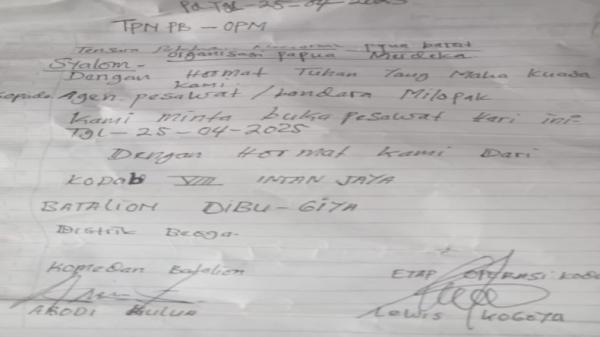 Pd Tgl-25-04-2025
TPN PB - OPM
Tensara
organisasi papua Merdeka
Syalom -
Dengan Hormat Tuhan Yang Maha Kuasa
kami
kepada Agen pesawat / bandara Milopak
Kami minta buka pesawat Hari ini-
TGL-25-04-2025
Dengan Hormat Kami Dari
KODAB VIII INTAN JAYA
BATALION DIBU-GIYA
Distrik Beoga.
Komedan Batalion
ETAP OPERASI KODA
ABODI KULUA
LEWIS KOGOYA